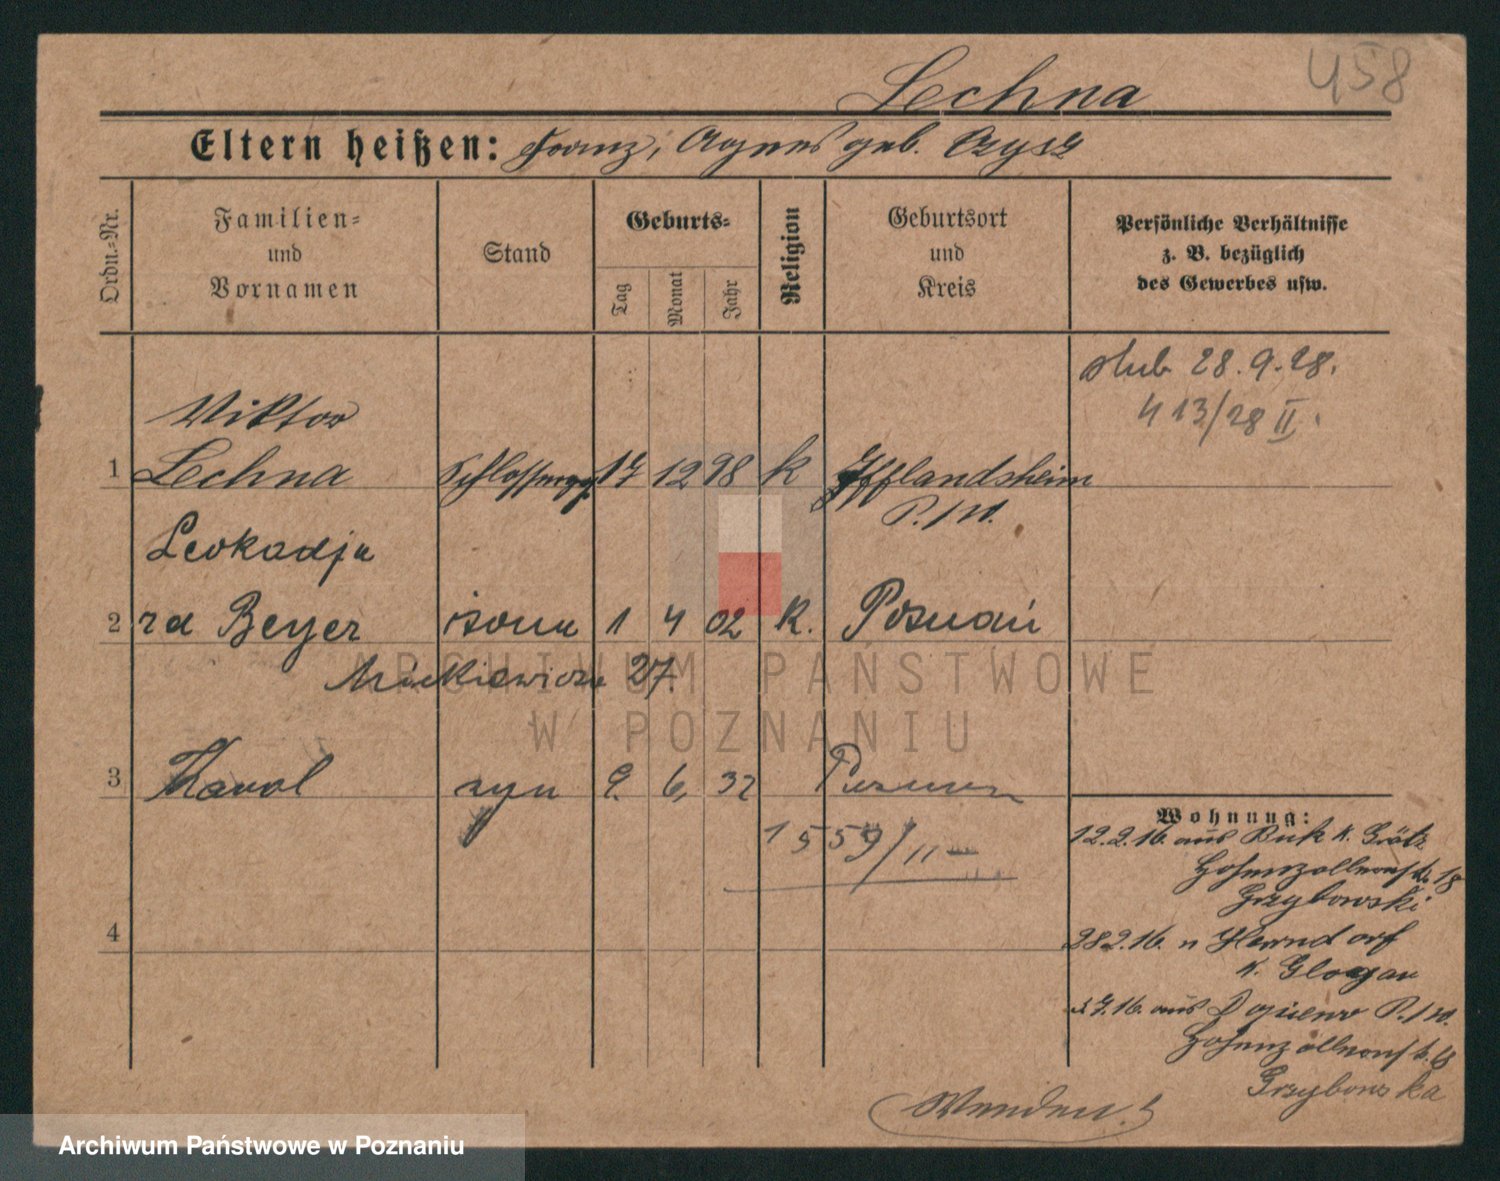 458
Lechna
Eltern heißen: Franz, Agnes geb. Czysz
Ordn.=Nr.
Familien=
und
Vornamen
Stand
Geburts=
Tag
Monat
Jahr
Religion
Geburtsort
und
Kreis
Persönliche Verhältnisse
z. B. bezüglich
des Gewerbes usw.
28.9.28.
413/28 II.
Viktor
1 Lechna 17 12 98 k Ifflandsheim
P./W.
Leokadja
2 zd Beyer żona 1 4 02 k. Poznań
Mickiewicza 27.
3 Karol syn 9. 6, 32 Poznań
1559/II
4
Wohnung:
12.2.16. aus Buk K. Grätz
Hohenzollernstr. 18
Grzybowski
28.2.16. n Herrndorf
K. Glogau
7.16. aus P./W.
Hohenzollernstr. 18
Grzybowska
Wenden!
ARCHIWUM PAŃSTWOWE
W POZNANIU
Archiwum Państwowe w Poznaniu